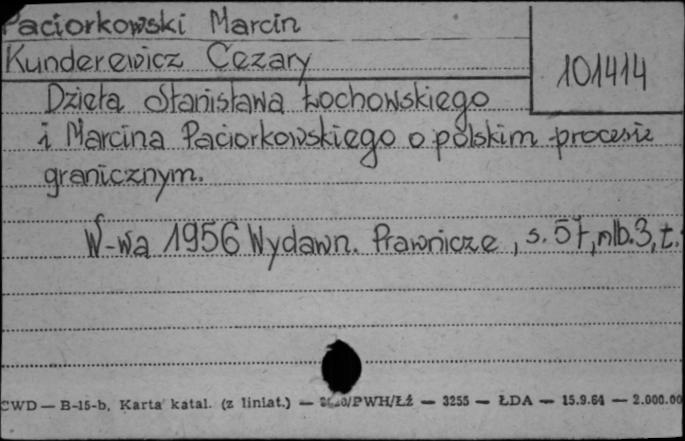 Paciorkowski Marcin
Kunderewicz Cezary
101414
Dzieła Stanisława Łochowskiego
i Marcina Paciorkowskiego o polskim procesie
granicznym.
W-wa 1956 Wydawn. Prawnicze, s. 57, nlb. 3, t.
CWD — B-15-b, Karta katal. (z liniat.) — /PWH/Łź — 3255 — ŁDA — 15.9.64 — 2.000.00